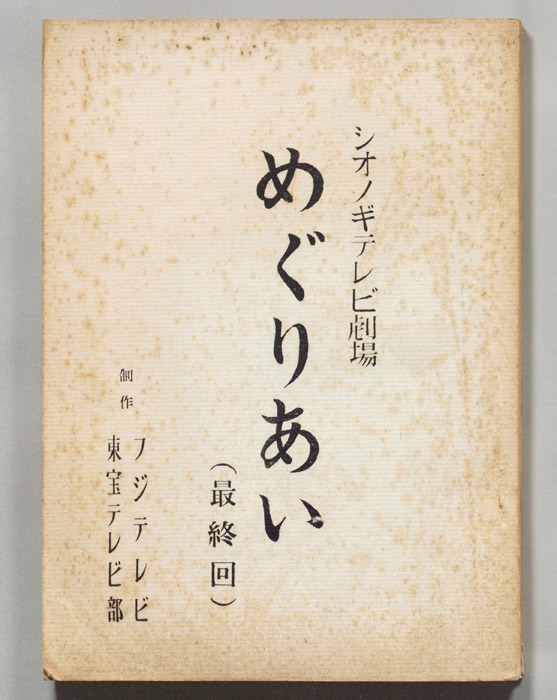 シオノギテレビ劇場
めぐりあい
(最終回)
制作
フジテレビ
東宝テレビ部